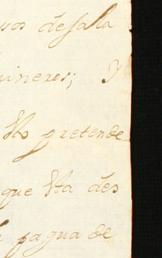 vos de sala
quineres; Y
Vto pretende
que Vta des
pagua de